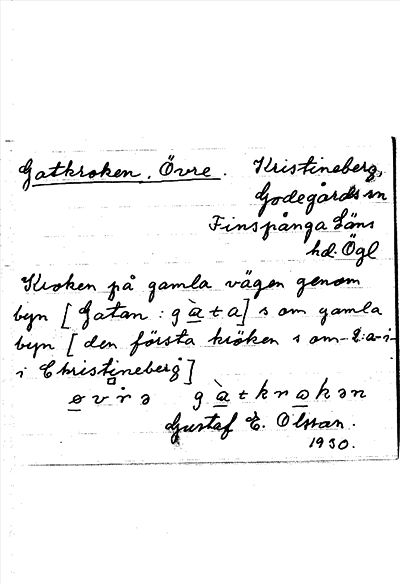 Gatkroken, Övre. Kristineberg,
Godegårds sn
Finspånga läns
hd. Ögl
Kroken på gamla vägen genom
byn [Gatan : gà̱ta] som gamla
byn [den första kröken som
i Christineberg]
ø̱vrə gà̱tkrω̱kən
Gustaf E. Olsson.
1930.